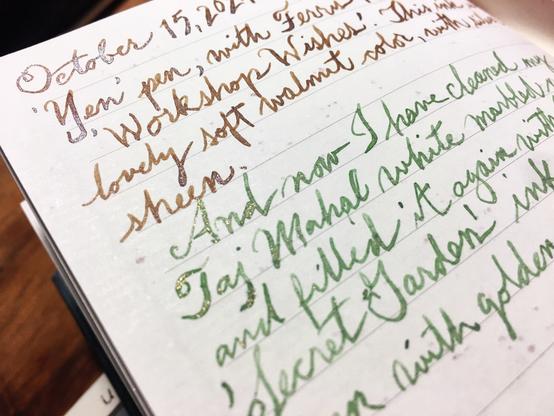 October 15, 202
'Yen' pen, with Ferris
'Workshop Wishes'. This ink
lovely soft walnut color, with
sheen.
And now I have cleaned my
Taj Mahal white marbled
and filled it again with
'Secret Garden' ink
with golden